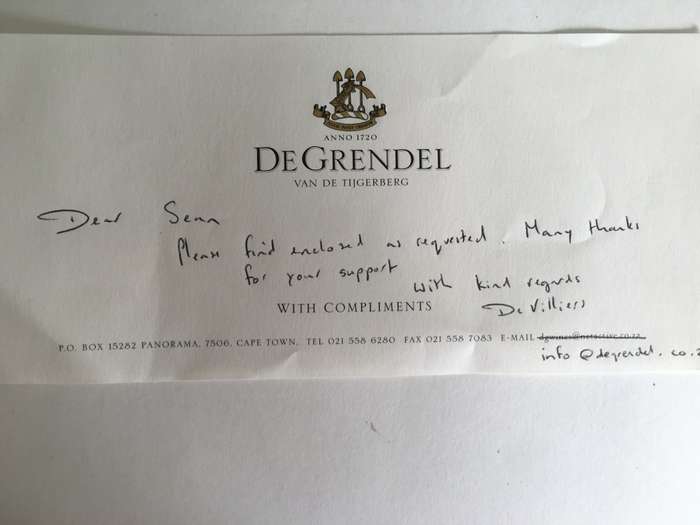 ANNO 1720
DEGRENDEL
VAN DE TIJGERBERG
Dear Sean
Please find enclosed as requested. Many thanks
for your support
with kind regards
De Villiers
WITH COMPLIMENTS
P.O. BOX 15282 PANORAMA, 7506, CAPE TOWN, TEL 021 558 6280 FAX 021 558 7083 E-MAIL dgwines@netactive.co.za
info @degrendel.co.z